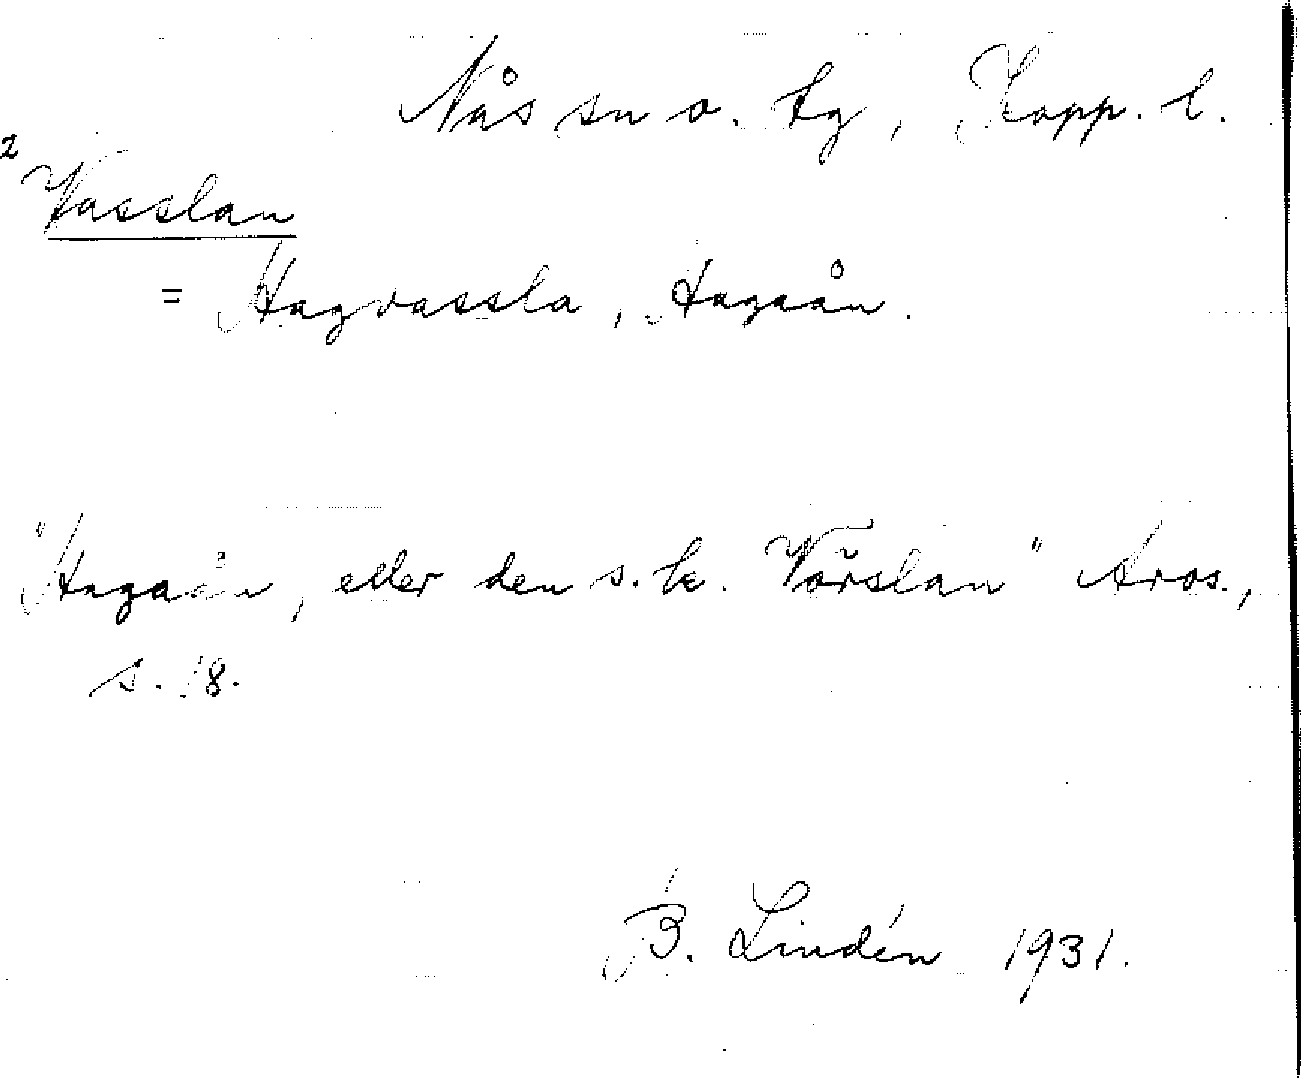 Nås sn o. tg, Kopp. l.
2
Vasslan
= Hagvassla, Hagaån.
"Hagaån, eller den s. k. Vårslan" Aros.,
s. 18.
B. Lindén 1931.